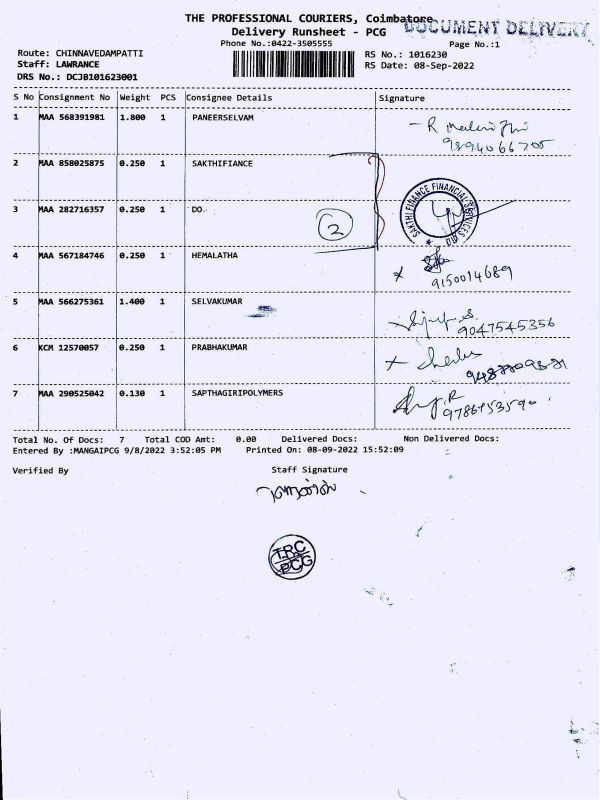 THE PROFESSIONAL COURIERS, Coimbatore
DOCUMENT DELIVERY
Delivery Runsheet - PCG
Phone No.:0422-3505555
Page No.:1
Route: CHINNAVEDAMPATTI
RS No.: 1016230
Staff: LAWRANCE
RS Date: 08-Sep-2022
DRS No.: DCJB101623001
S No Consignment No Weight PCS Consignee Details Signature
1 MAA 568391981 1.800 1 PANEERSELVAM
9894066705
2 MAA 858025875 0.250 1 SAKTHIFIANCE
SAKTHI FINANCE FINANCIAL SERVICES LTD
3 MAA 282716357 0.250 1 DO..
2
4 MAA 567184746 0.250 1 HEMALATHA
9150014689
5 MAA 566275361 1.400 1 SELVAKUMAR
9047545356
6 KCM 12570057 0.250 1 PRABHAKUMAR
7 MAA 290525042 0.130 1 SAPTHAGIRIPOLYMERS
Total No. Of Docs: 7 Total COD Amt: 0.00 Delivered Docs: Non Delivered Docs:
Entered By :MANGAIPCG 9/8/2022 3:52:05 PM Printed On: 08-09-2022 15:52:09
Verified By Staff Signature
TRC
PCG